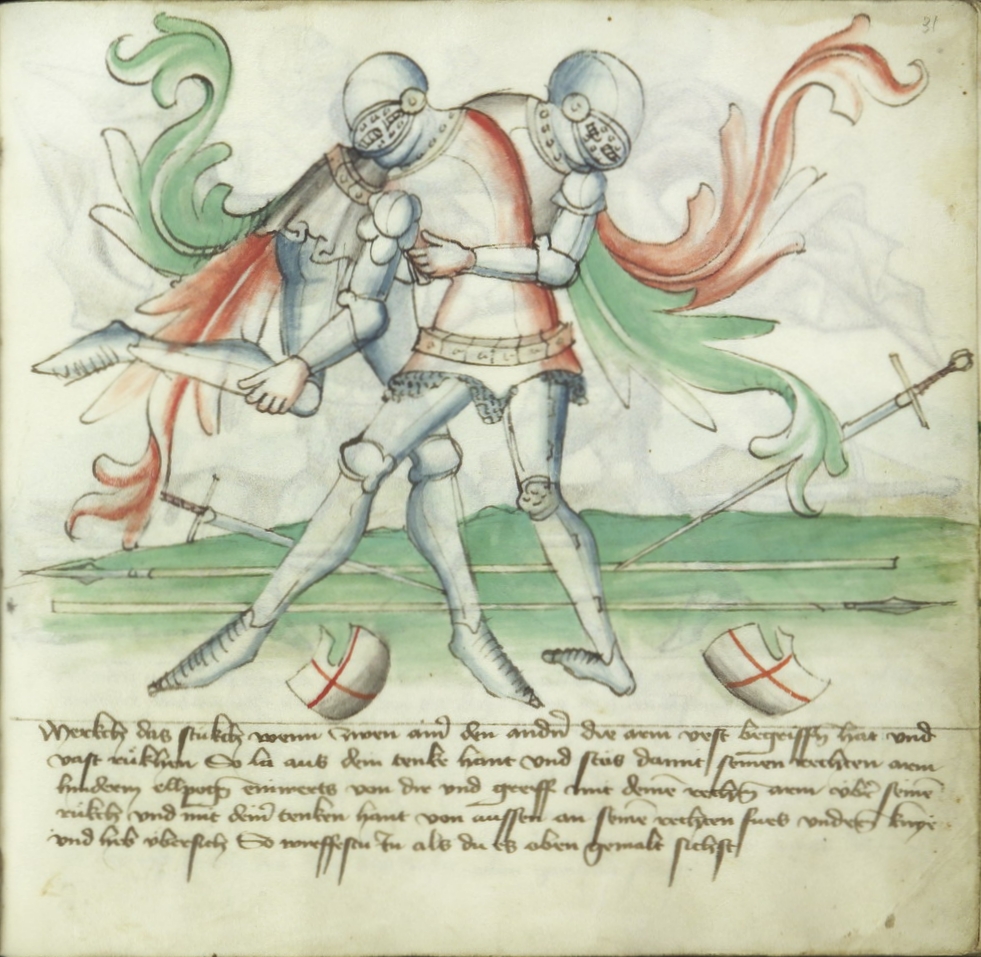 31
Merckch das stukch wenn ainer den andern die arm vest begriffn hat vnd
vast rukhen So la aus dein tenke hant vnd stos damit seinen rechten arm
hinderm ellpogn einwerts von dir vnd greiff mit deinem rechtn arm vber seinen
rukch vnd mit deiner tenken hant von aussen an seinen rechten fues vnder knye
vnd heb vbersich So wirffestu In als du es oben gemalt sichst